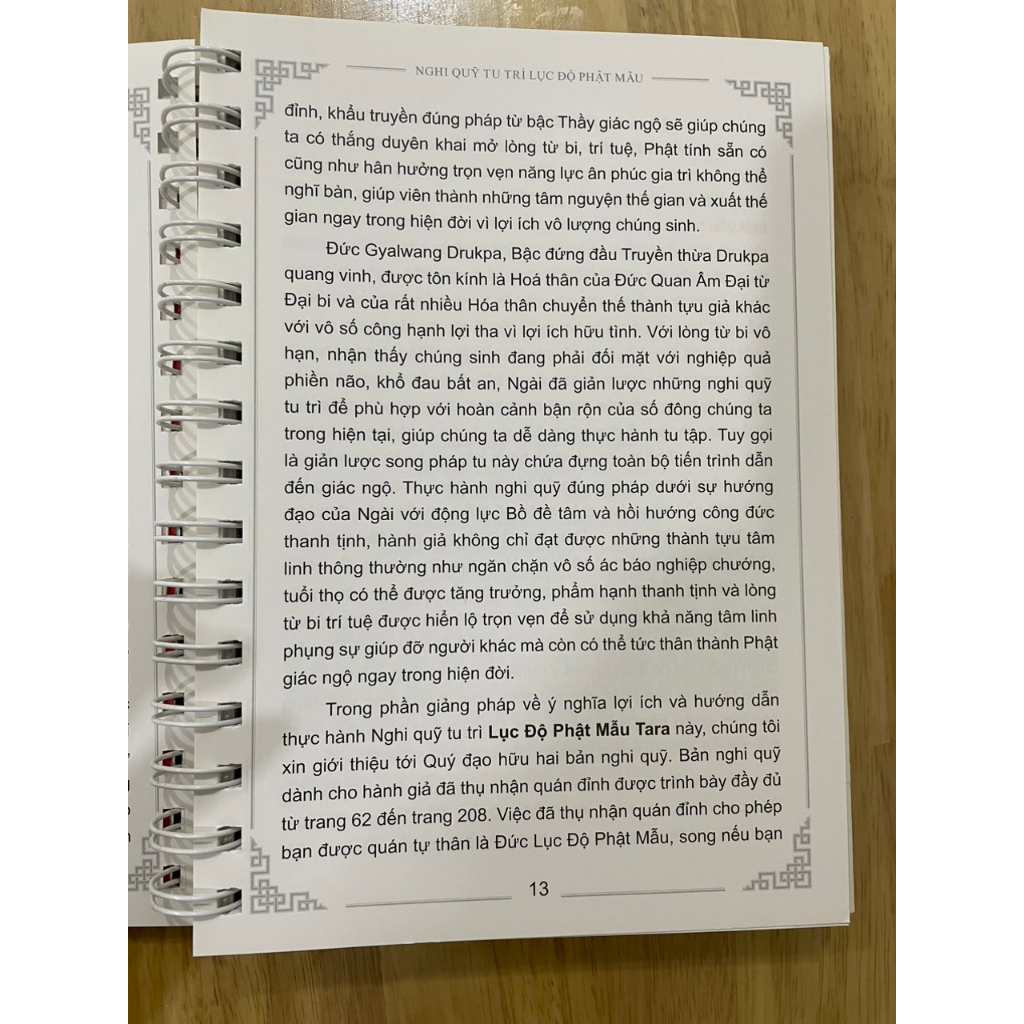 NGHI QUỸ TU TRÌ LỤC ĐỘ PHẬT MẪU
đỉnh, khẩu truyền đúng pháp từ bậc Thầy giác ngộ sẽ giúp chúng
ta có thắng duyên khai mở lòng từ bi, trí tuệ, Phật tính sẵn có
cũng như hân hưởng trọn vẹn năng lực ân phúc gia trì không thể
nghĩ bàn, giúp viên thành những tâm nguyện thế gian và xuất thế
gian ngay trong hiện đời vì lợi ích vô lượng chúng sinh.
Đức Gyalwang Drukpa, Bậc đứng đầu Truyền thừa Drukpa
quang vinh, được tôn kính là Hoá thân của Đức Quan Âm Đại từ
Đại bi và của rất nhiều Hóa thân chuyển thế thành tựu giả khác
với vô số công hạnh lợi tha vì lợi ích hữu tình. Với lòng từ bi vô
hạn, nhận thấy chúng sinh đang phải đối mặt với nghiệp quả
phiền não, khổ đau bất an, Ngài đã giản lược những nghi quỹ
tu trì để phù hợp với hoàn cảnh bận rộn của số đông chúng ta
trong hiện tại, giúp chúng ta dễ dàng thực hành tu tập. Tuy gọi
là giản lược song pháp tu này chứa đựng toàn bộ tiến trình dẫn
đến giác ngộ. Thực hành nghi quỹ đúng pháp dưới sự hướng
đạo của Ngài với động lực Bồ đề tâm và hồi hướng công đức
thanh tịnh, hành giả không chỉ đạt được những thành tựu tâm
linh thông thường như ngăn chặn vô số ác báo nghiệp chướng,
tuổi thọ có thể được tăng trưởng, phẩm hạnh thanh tịnh và lòng
từ bi trí tuệ được hiển lộ trọn vẹn để sử dụng khả năng tâm linh
phụng sự giúp đỡ người khác mà còn có thể tức thân thành Phật
giác ngộ ngay trong hiện đời.
Trong phần giảng pháp về ý nghĩa lợi ích và hướng dẫn
thực hành Nghi quỹ tu trì Lục Độ Phật Mẫu Tara này, chúng tôi
xin giới thiệu tới Quý đạo hữu hai bản nghi quỹ. Bản nghi quỹ
dành cho hành giả đã thụ nhận quán đỉnh được trình bày đầy đủ
từ trang 62 đến trang 208. Việc đã thụ nhận quán đỉnh cho phép
bạn được quán tự thân là Đức Lục Độ Phật Mẫu, song nếu bạn
13